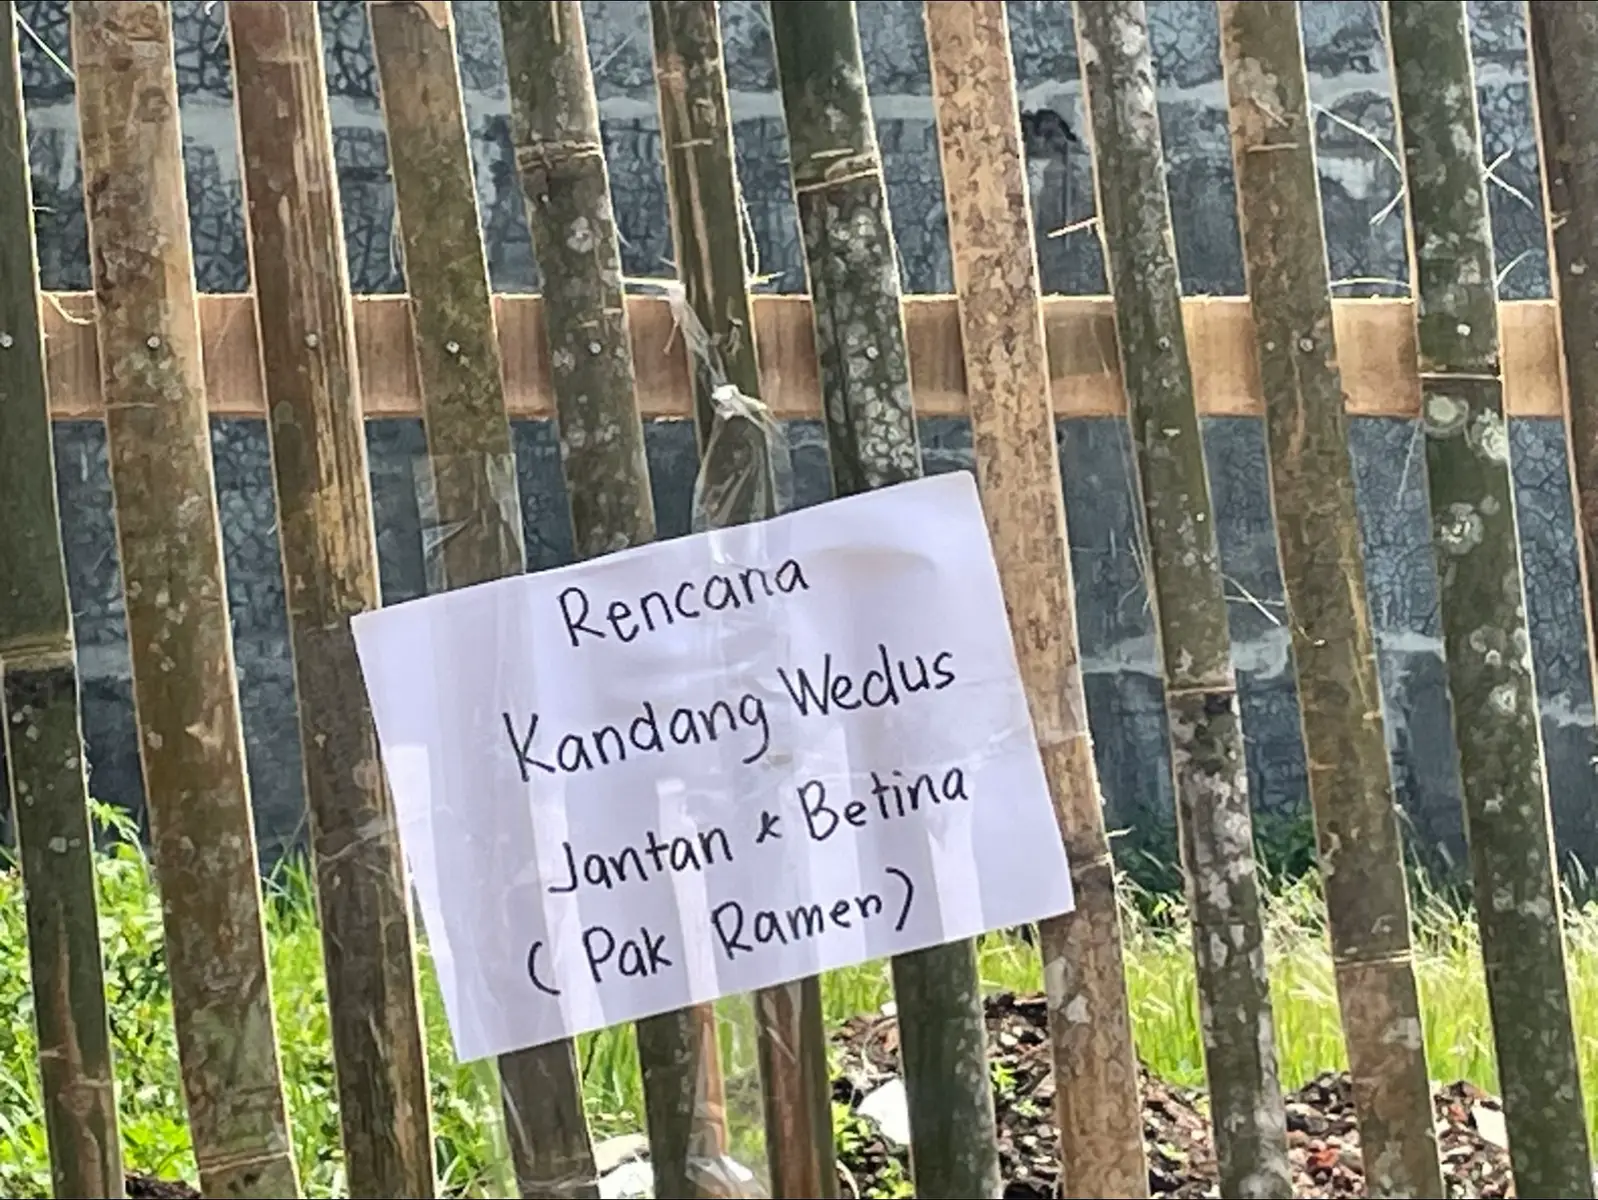 Rencana
Kandang Wedus
Jantan & Betina
(Pak Ramen)